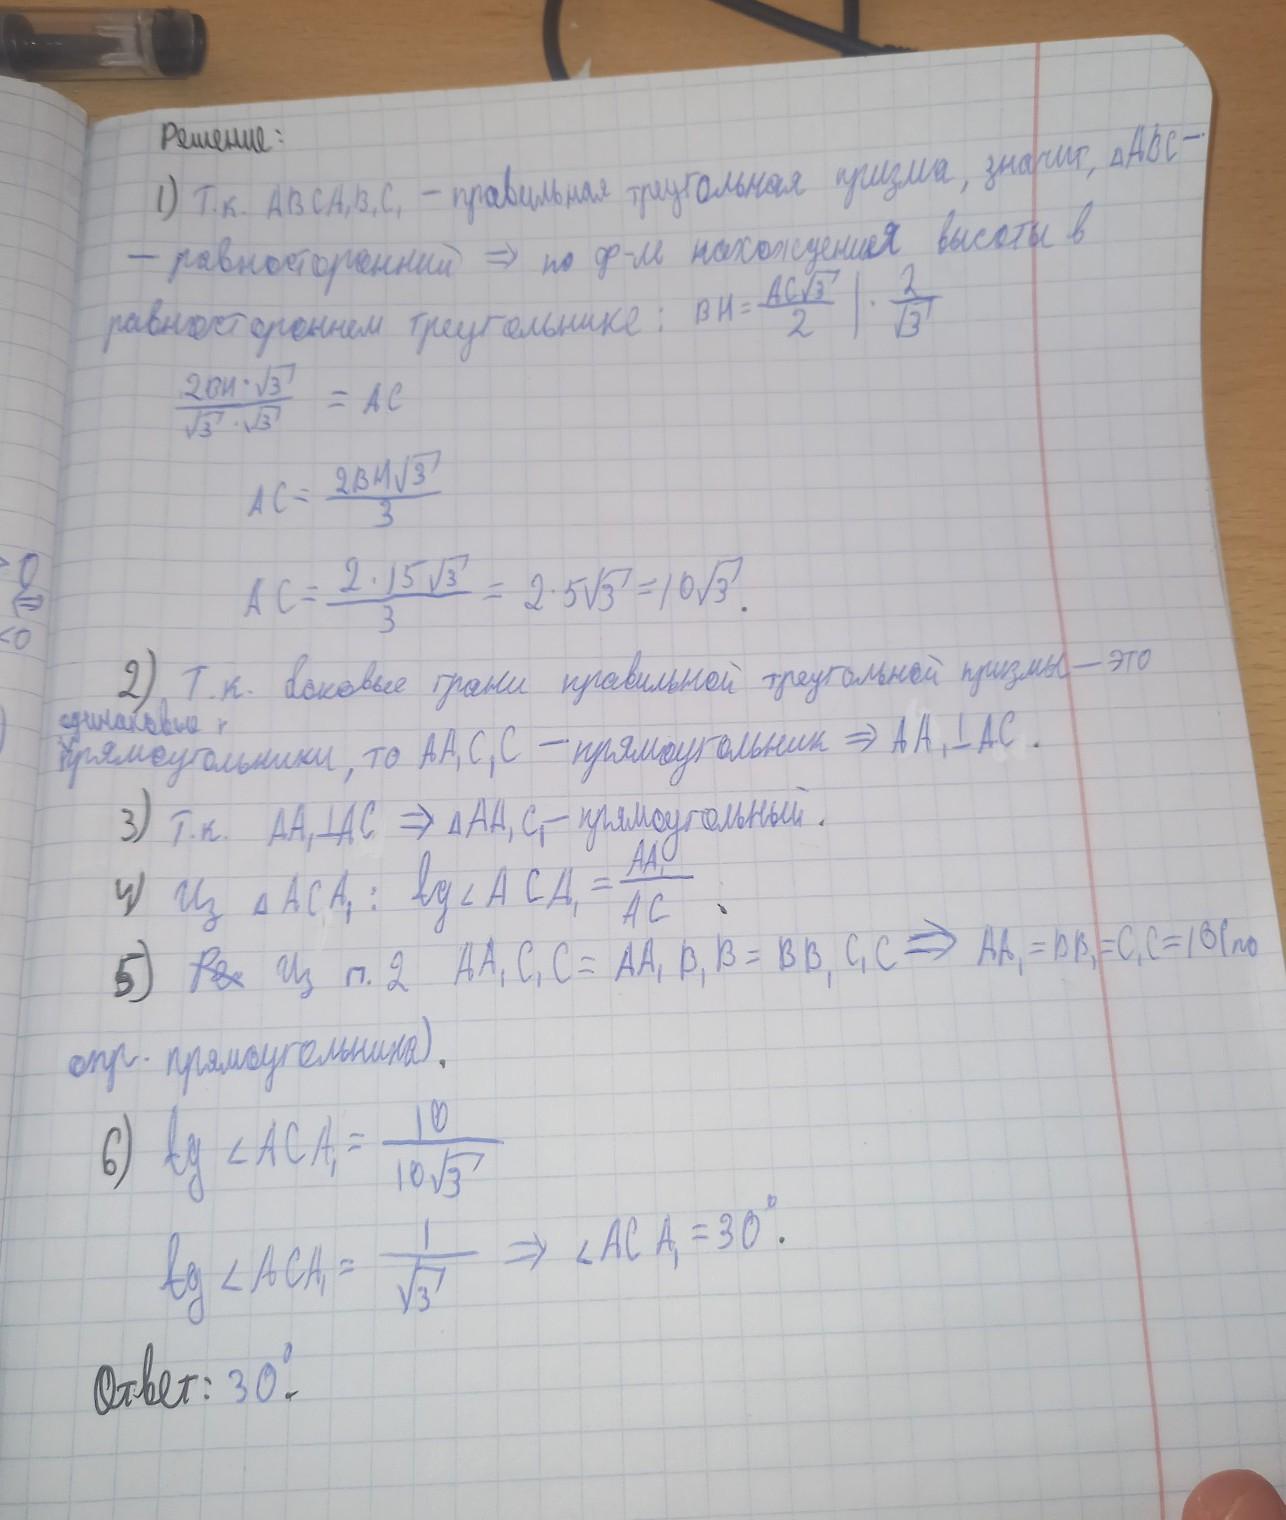 Решение:
1) Т.к. ABCA₁B₁C₁ – правильная треугольная призма, значит, △ABC –
– равносторонний ⇒ по ф-ле нахождения высоты в
равностороннем треугольнике: BH = AC√3/2 | · 2/√3
2BH·√3/√3·√3 = AC
AC = 2BH√3/3
AC = 2·15√3/3 = 2·5√3 = 10√3.
2) Т.к. боковые грани правильной треугольной призмы – это
одинаковые
прямоугольники, то AA₁C₁C – прямоугольник ⇒ AA₁⊥AC.
3) Т.к. AA₁⊥AC ⇒ △AA₁C₁ – прямоугольный.
4) Из △ACA₁: tg∠ACA₁ = AA₁/AC
5) Из п.2 AA₁C₁C = AA₁B₁B = BB₁C₁C ⇒ AA₁=BB₁=C₁C=10 (по
опр. прямоугольника).
6) tg∠ACA₁ = 10/10√3
tg∠ACA₁ = 1/√3 ⇒ ∠ACA₁ = 30°.
Ответ: 30°.
>0
<0